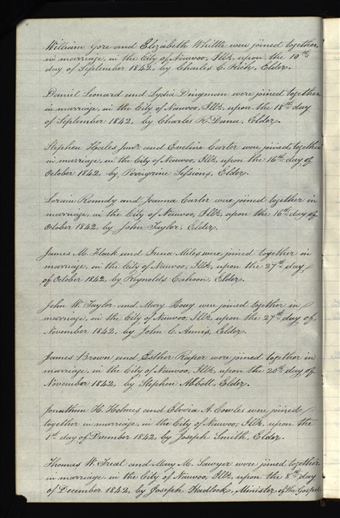 William Gore and Elizabeth Whittle were joined together
in marriage, in the City of Nauvoo, Ills, upon the 10th
day of September 1842, by Charles C. Rich, Elder.
Daniel Leonard and Lydia Dingman were joined together
in marriage, in the City of Nauvoo, Ills. upon the 18th day
of September 1842, by Charles R. Dana, Elder.
Stephen Hales Junr and Eveline Carter were joined together
in marriage, in the City of Nauvoo, Ills, upon the 16th day of
October 1842, by Peregrine Sessions, Elder.
Lorain and Joanna Carter were joined together in
marriage, in the City of Nauvoo, Ills, upon the 16th day of
October 1842, by John Taylor, Elder.
James M. Flack and Irena Miles were joined together in
marriage, in the City of Nauvoo, Ills, upon the 27th day
of October 1842, by Reynolds Cahoon, Elder.
John W. Taylor and Mary were joined together in
marriage, in the City of Nauvoo, Ills, upon the 27th day of
November 1842, by John C. Annis, Elder.
James Brown and Esther Raper were joined together in
marriage, in the City of Nauvoo, Ills, upon the 20th day of
November 1842, by Stephen Abbott, Elder.
Jonathan H. Holmes and Elvira A. Cowles were joined
together in marriage, in the City of Nauvoo, Ills, upon the
1st day of December 1842, by Joseph Smith, Elder.
Thomas W. Treat and Mary M. Sawyer were joined together
in marriage in the City of Nauvoo, Ills, upon the 8th day
of December 1842, by Joseph Hadlock, Minister of the Gospel